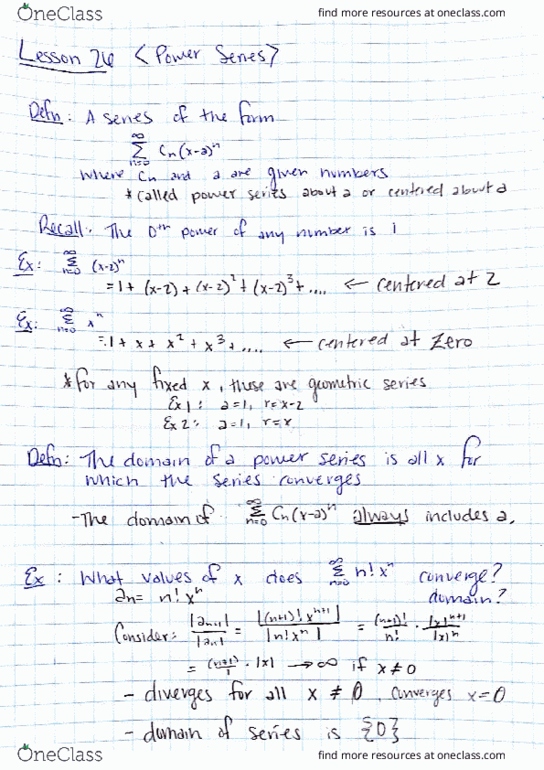 OneClass find more resources at oneclass.com
Lesson 26 <Power Series>
Defn: A series of the form
∞Σn=0 Cn(x-a)^n
where Cn and a are given numbers
* called power series about a or centered about a
Recall: The 0th power of any number is 1
Ex: ∞Σn=0 (x-2)^n
=1+(x-2)+(x-2)^2+(x-2)^3+.... ← centered at 2
Ex: ∞Σn=0 x^n
=1+x+x^2+x^3+.... ← centered at zero
* for any fixed x, these are geometric series
Ex 1: a=1, r=x-2
Ex 2: a=1, r=x
Defn: The domain of a power series is all x for
which the series converges
-The domain of ∞Σn=0 Cn(x-a)^n always includes a.
Ex: What values of x does ∞Σn=0 n!x^n converge?
an= n!x^n domain?
Consider: |an+1|/|an| = |(n+1)!x^(n+1)|/|n!x^n| = (n+1)!/n! · |x|^(n+1)/|x|^n
= (n+1)/1 · |x| → ∞ if x≠0
- diverges for all x ≠ 0, converges x=0
- domain of series is {0}
OneClass find more resources at oneclass.com